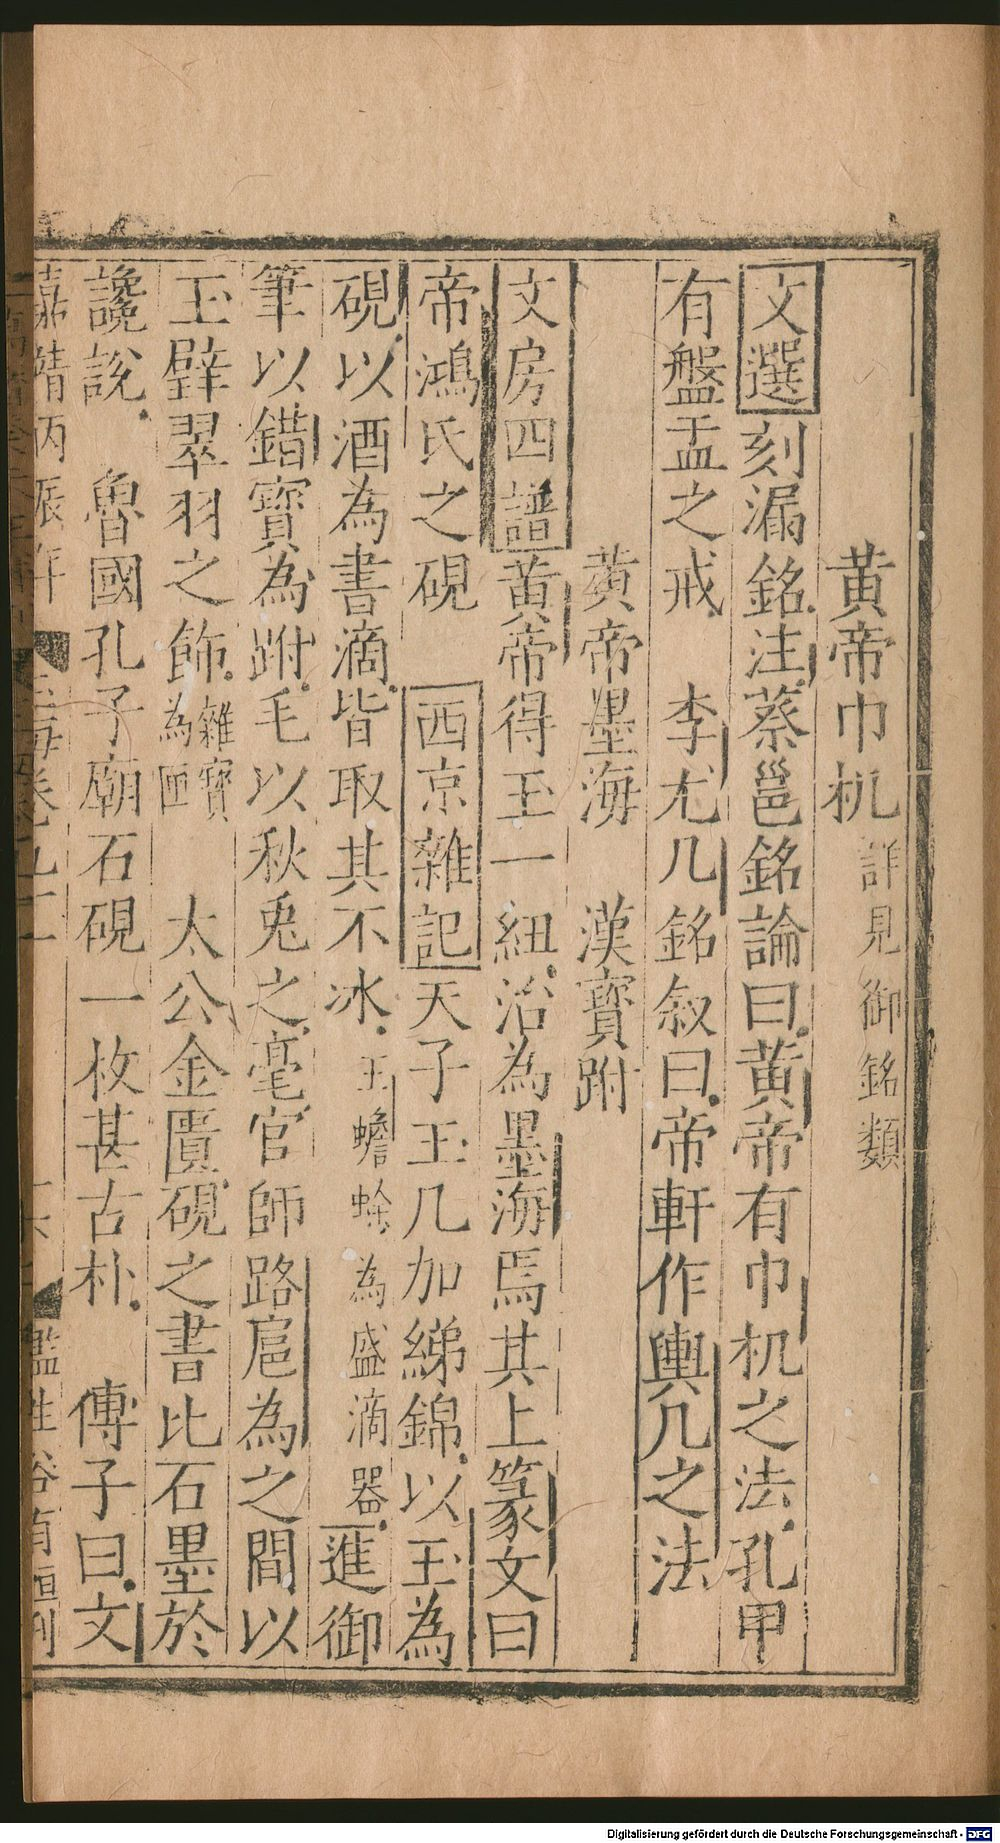 黄帝巾机詳見御銘類
文選刻漏銘注蔡邕銘論曰黄帝有巾机之法孔甲
有盤盂之戒　李尤几銘叙曰帝軒作輿几之法
黄帝墨海　漢寳跗
文房四譜黄帝得玉一紐治為墨海焉其上篆文曰
帝鴻氏之硯　西京雜記天子玉几加綈錦以玉為
硯以酒為書滴皆取其不冰玉蟾蜍為盛滴器進御
筆以錯寳為跗毛以秋兎之毫官師路扈為之間以
玉璧翠羽之飾雜寳為匣　太公金匱硯之書比石墨於
讒説　魯國孔子廟石硯一枚甚古朴　傳子曰文
嘉靖丙辰年　玉海卷九十一
監生谷有恒刋
Digitalisierung gefördert durch die Deutsche Forschungsgemeinschaft - DFG